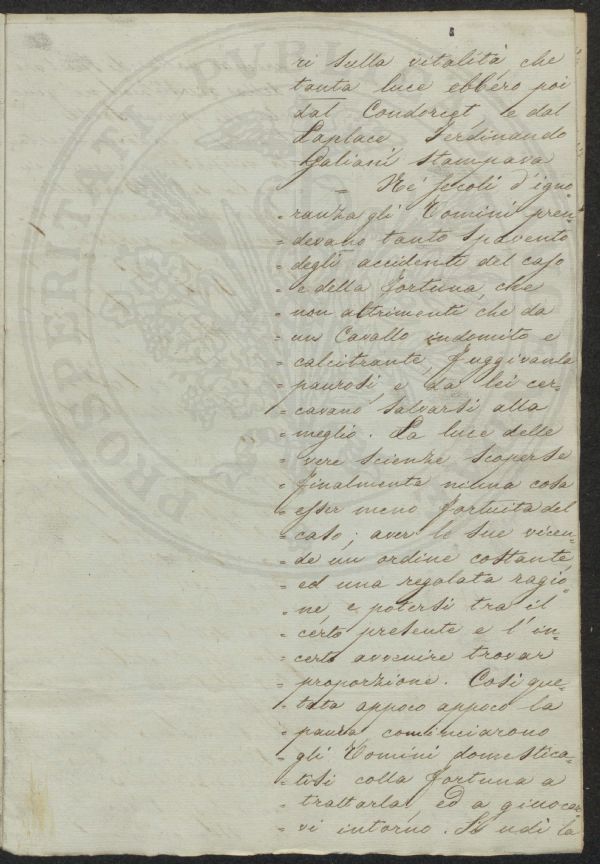 ri sulla vitalità, che
tanta luce ebbero poi
dal Condorcet, e dal
Laplace Ferdinando
Galiani stampava
= Ne' secoli d'igno=
= ranza gli Uomini pren=
= devano tanto spavento
= degli accidenti del caso
= e della fortuna, che
= non altrimenti che da
= un Cavallo indomito e
= calcitrante, fuggivanla
= paurosi, e da lei cer=
= cavano salvarsi alla
= meglio. La luce delle
= vere scienze scoperse
= finalmente niuna cosa
= esser meno fortuita del
= caso; aver le sue vicen=
= de un ordine costante,
= ed una regolata ragio=
= ne e potersi tra il
= certo presente e l'in=
= certo avvenire trovar
= proporzione. Così que=
= tata appoco appoco la
= paura, cominciarono
= gli Uomini domestica=
= tisi colla fortuna a
= trattarla, ed a giuocar
= vi intorno. Si udì la
PROSPERITATI PUBLIC